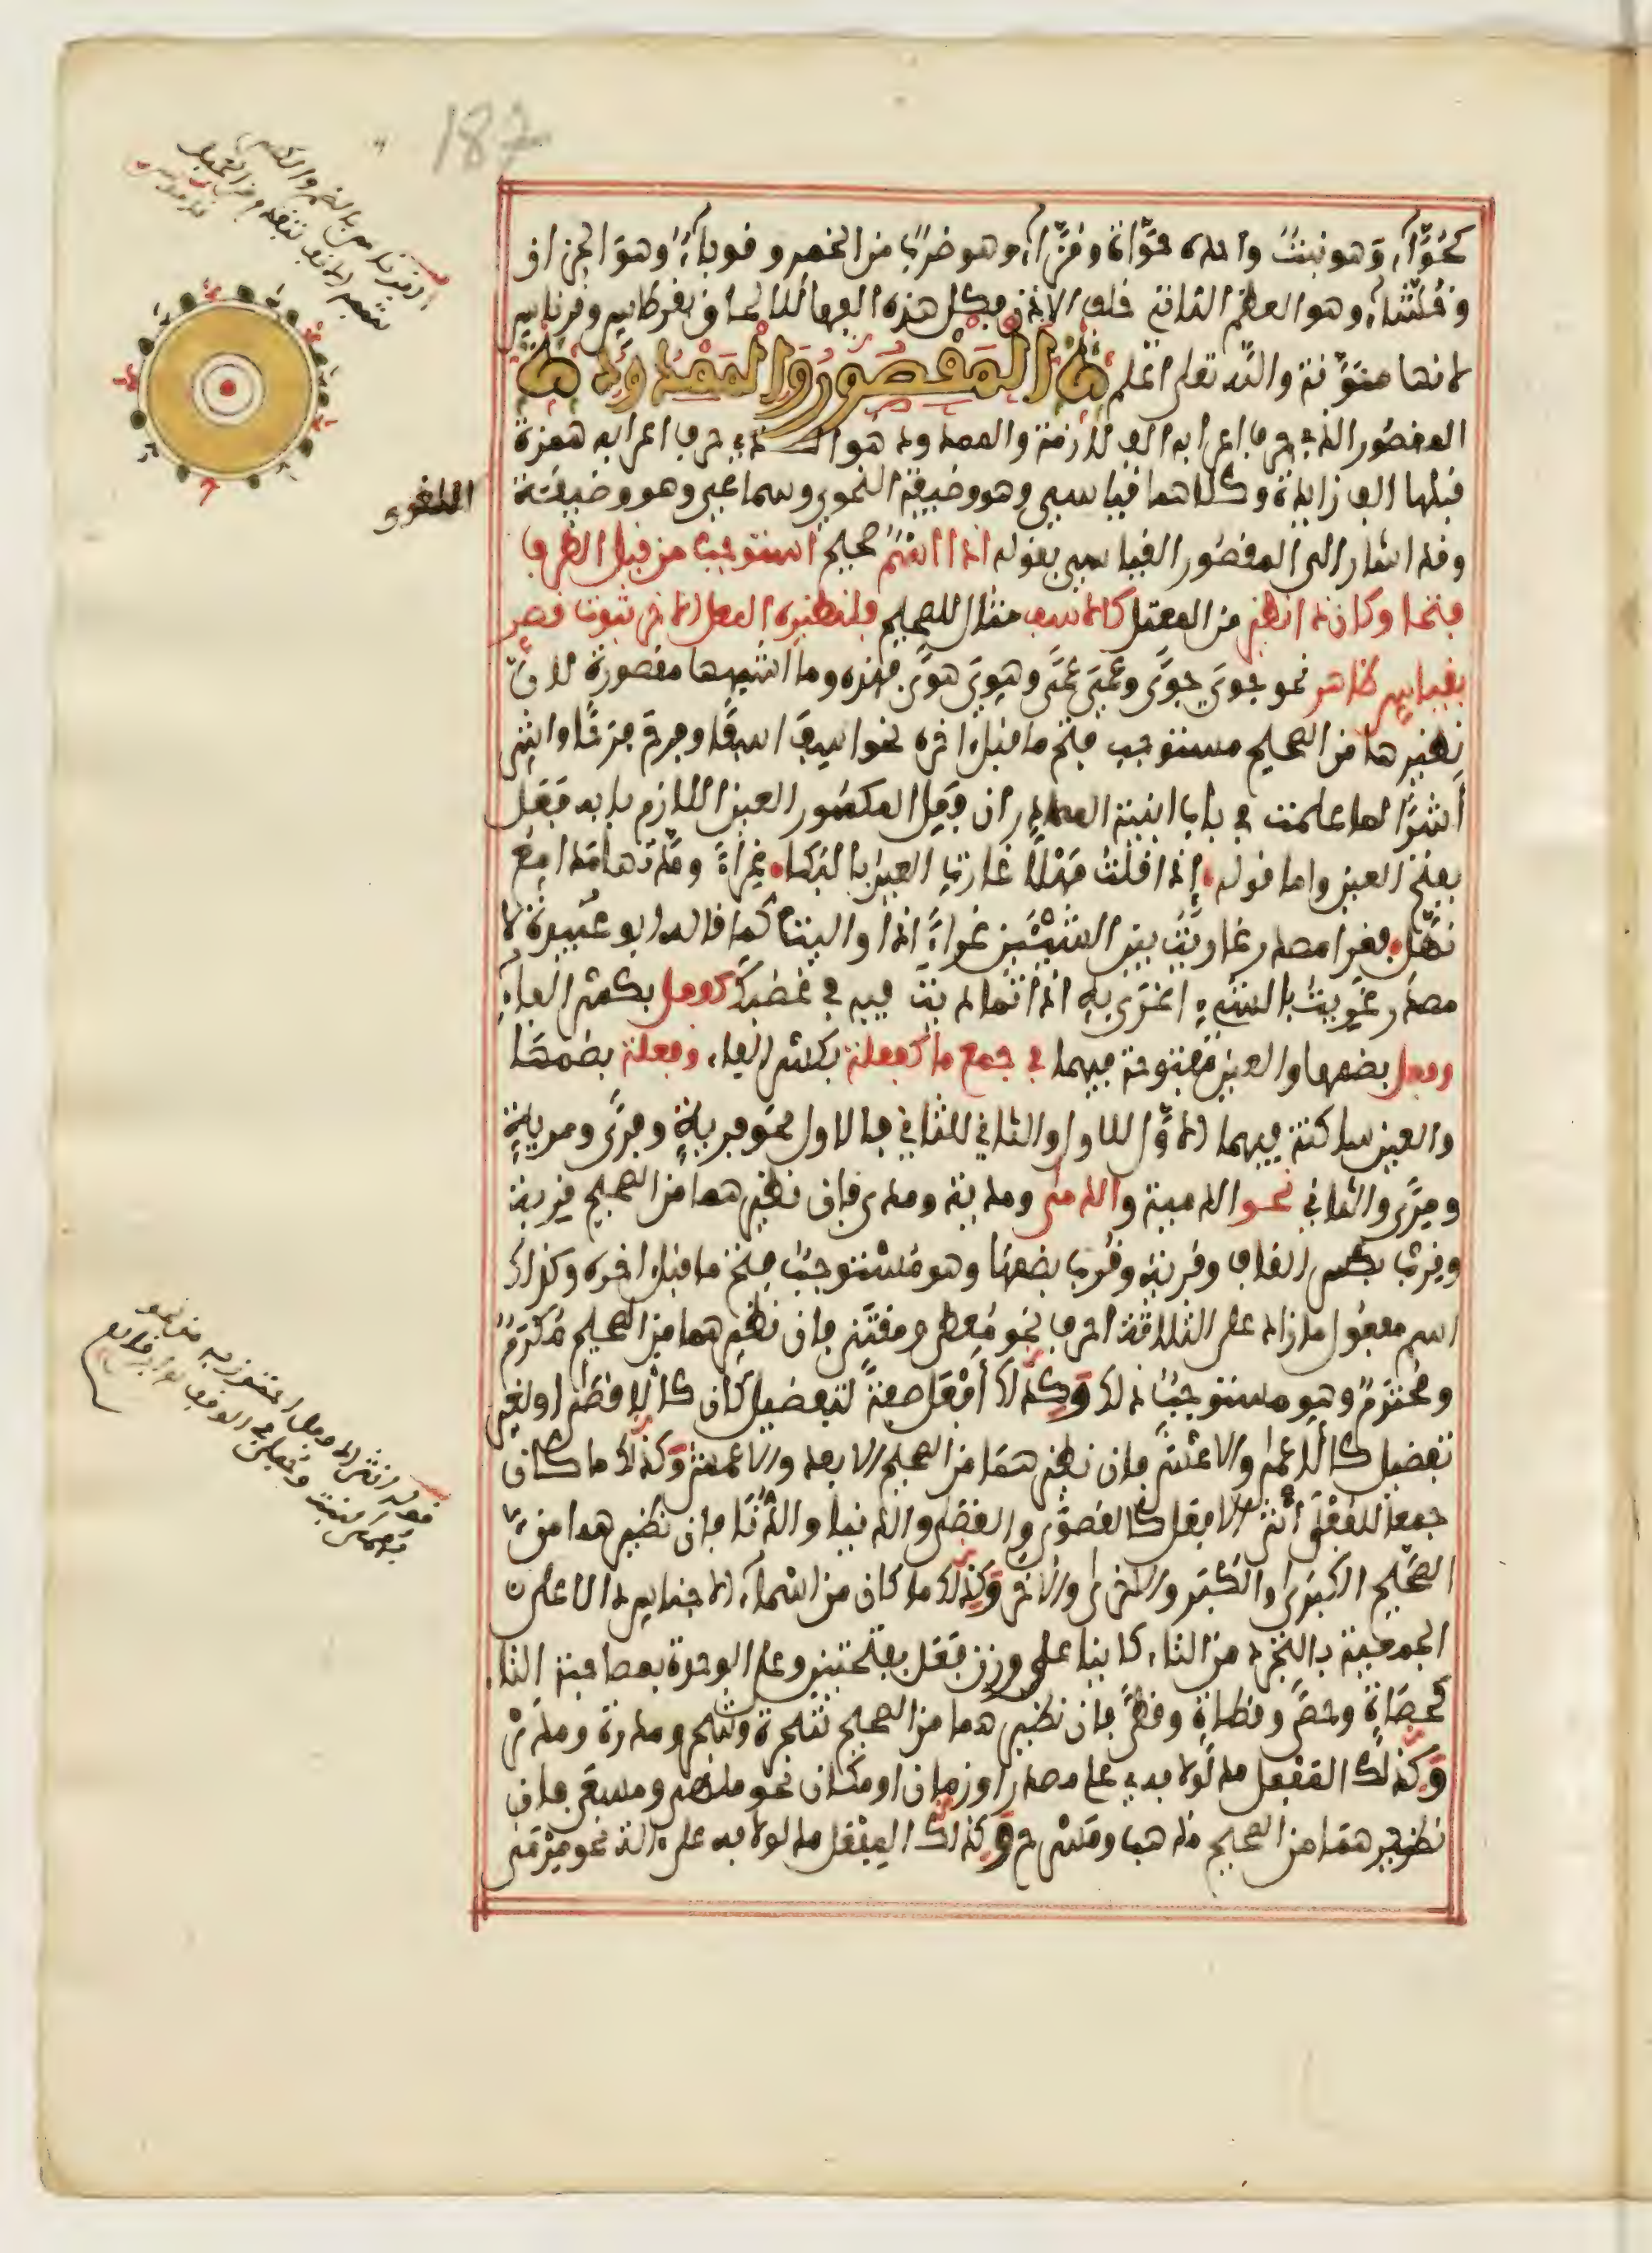 187
كحُوَّاء، وَهو نبتٌ واحده حُوَّاءة ومُزَّاء، وهو ضربٌ من الخمر وقوباء، وهو الجزاز
وخُشَّاء، وهو العظم الناتئ خلف الأذن فكل هذه ألفها للإلحاق بقرطاس وقرناس
لأنها منوّنة والله تعلى أعلم المَقْصُورُ وَالمَمْدُودُ
المقصُور الذي حرف إعرابه ألف لازمة والممدود هو الذي حرف إعرابه همزة
قبلها ألف زايدة وكلاهما قياسي وهو وضيفة النحوي وسماعي وهو وضيفة
اللغوي
وقد أشار إلى المقصُور القياسي بقوله إذا اسْمٌ صحيح استوجب من قبل الطرف
فتحا وكان ذا نظير من المعتل كالأسف مثال للصحيح فلنظيره المعل الأخر ثبوت قصر
بقياس ظاهر نحو جوِيَ جوًى وعَمِيَ عمًى وهَوِيَ هوًى فهذه وما أشبهها مقصورة لأنّ
نظيرها من الصحيح مستوجب فتح ما قبل اخره نحو أسِفَ أسفًا وفرح فرحًا وأشِر
أشرًا لما علمت في باب أبنية المصادر أن فَعِل المكسُور العين اللازم بابه فَعَل
بفتح العين وأما قوله إذا قلت مَهْلًا غارتِ العين بالبكا غِراءً ومدّتها مدامع
نُهَّل فغرا مصدر غاريْتُ بين الشيْئين غراءً إذا واليت كما قاله أبو عُبيدة لا
مصدر غَرِيتُ بالشيء أغرَى به إذا تماديت فيه في غضبك كفِعل بكسْر الفاء
وفُعل بضمها والعين مفتوحة فيهما في جمع ما كفِعلة بكسْر الفاء وفُعلة بضمها
والعين ساكنة فيهما الأوَّل للأول والثاني للثاني فالأول نحو فِريةٍ وفِرًى ومريةٍ
ومِرًى والثاني نحو الدمية والدمى ومدية ومدى فإن نظيرهما من الصحيح قِربة
وقِربٌ بكسر القاف وقُربة وقُرب بضمها وهو مُسْتوجبٌ فتح ما قبل اخره وكذلك
اسم مفعُول ما زاد على الثلاثة أحرف نحو مُعطى ومقتنى فإن نظيرهما من الصحيح مُكرَمٌ
ومحترَمٌ وهو مستوجبٌ ذلك وكذلك أفْعَل صفةً لتفضيل كان كالأقصَى أو لغير
تفضيل كالأعمَى والأعشَى فإن نظيرهمَا من الصحيح الأبعد والأعمش وكذلك ما كان
جمعا للفُعْلَى أنثى الأفعل كالقصوَى والقصَى والدنيا والدُّنَا فإن نظيرهما من
الصّحيح الكبرَى والكُبَر والأخرى والأخَر وكذلك ما كان من أسْماء الأجناس دالا على
الجمعية بالتجرّد من التاء كاينا على وزن فَعَل بفتحتين وعلى الوحدة بمصاحبة التاء
كحصَاةٍ وحصًى وقطاةٍ وقطًى فإن نظيرهما من الصحيح شجرة وشجر ومدرة ومدر
وكذلك المفعل مدلولا به على مصدر أو زمان أو مكان نحو ملهى ومسعى فإن
نظيرهمَا من الصحيح مذهب ومَسْرح وكذلك المِفْعل مدلولا به على آلة نحو مِرْمى